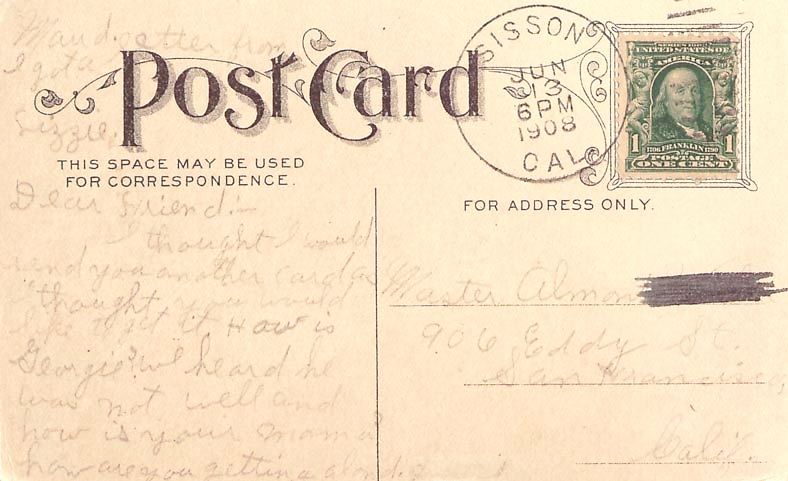 I got a letter from
Lizzie.
Post Card
THIS SPACE MAY BE USED
FOR CORRESPONDENCE.
FOR ADDRESS ONLY.
SISSON
JUN
13
6 PM
1908
CAL.
SERIES 1902
UNITED STATES OF
AMERICA
1 1706 FRANKLIN 1790 1
POSTAGE
ONE CENT
Dear Friend:-
I thought I would
send you another card as
I thought you would
like to get it How is
Georgie? we heard he
was not well and
how is your Mama?
how are you getting along.
Master Almon
906 Eddy St.
San Francisco,
Calif.